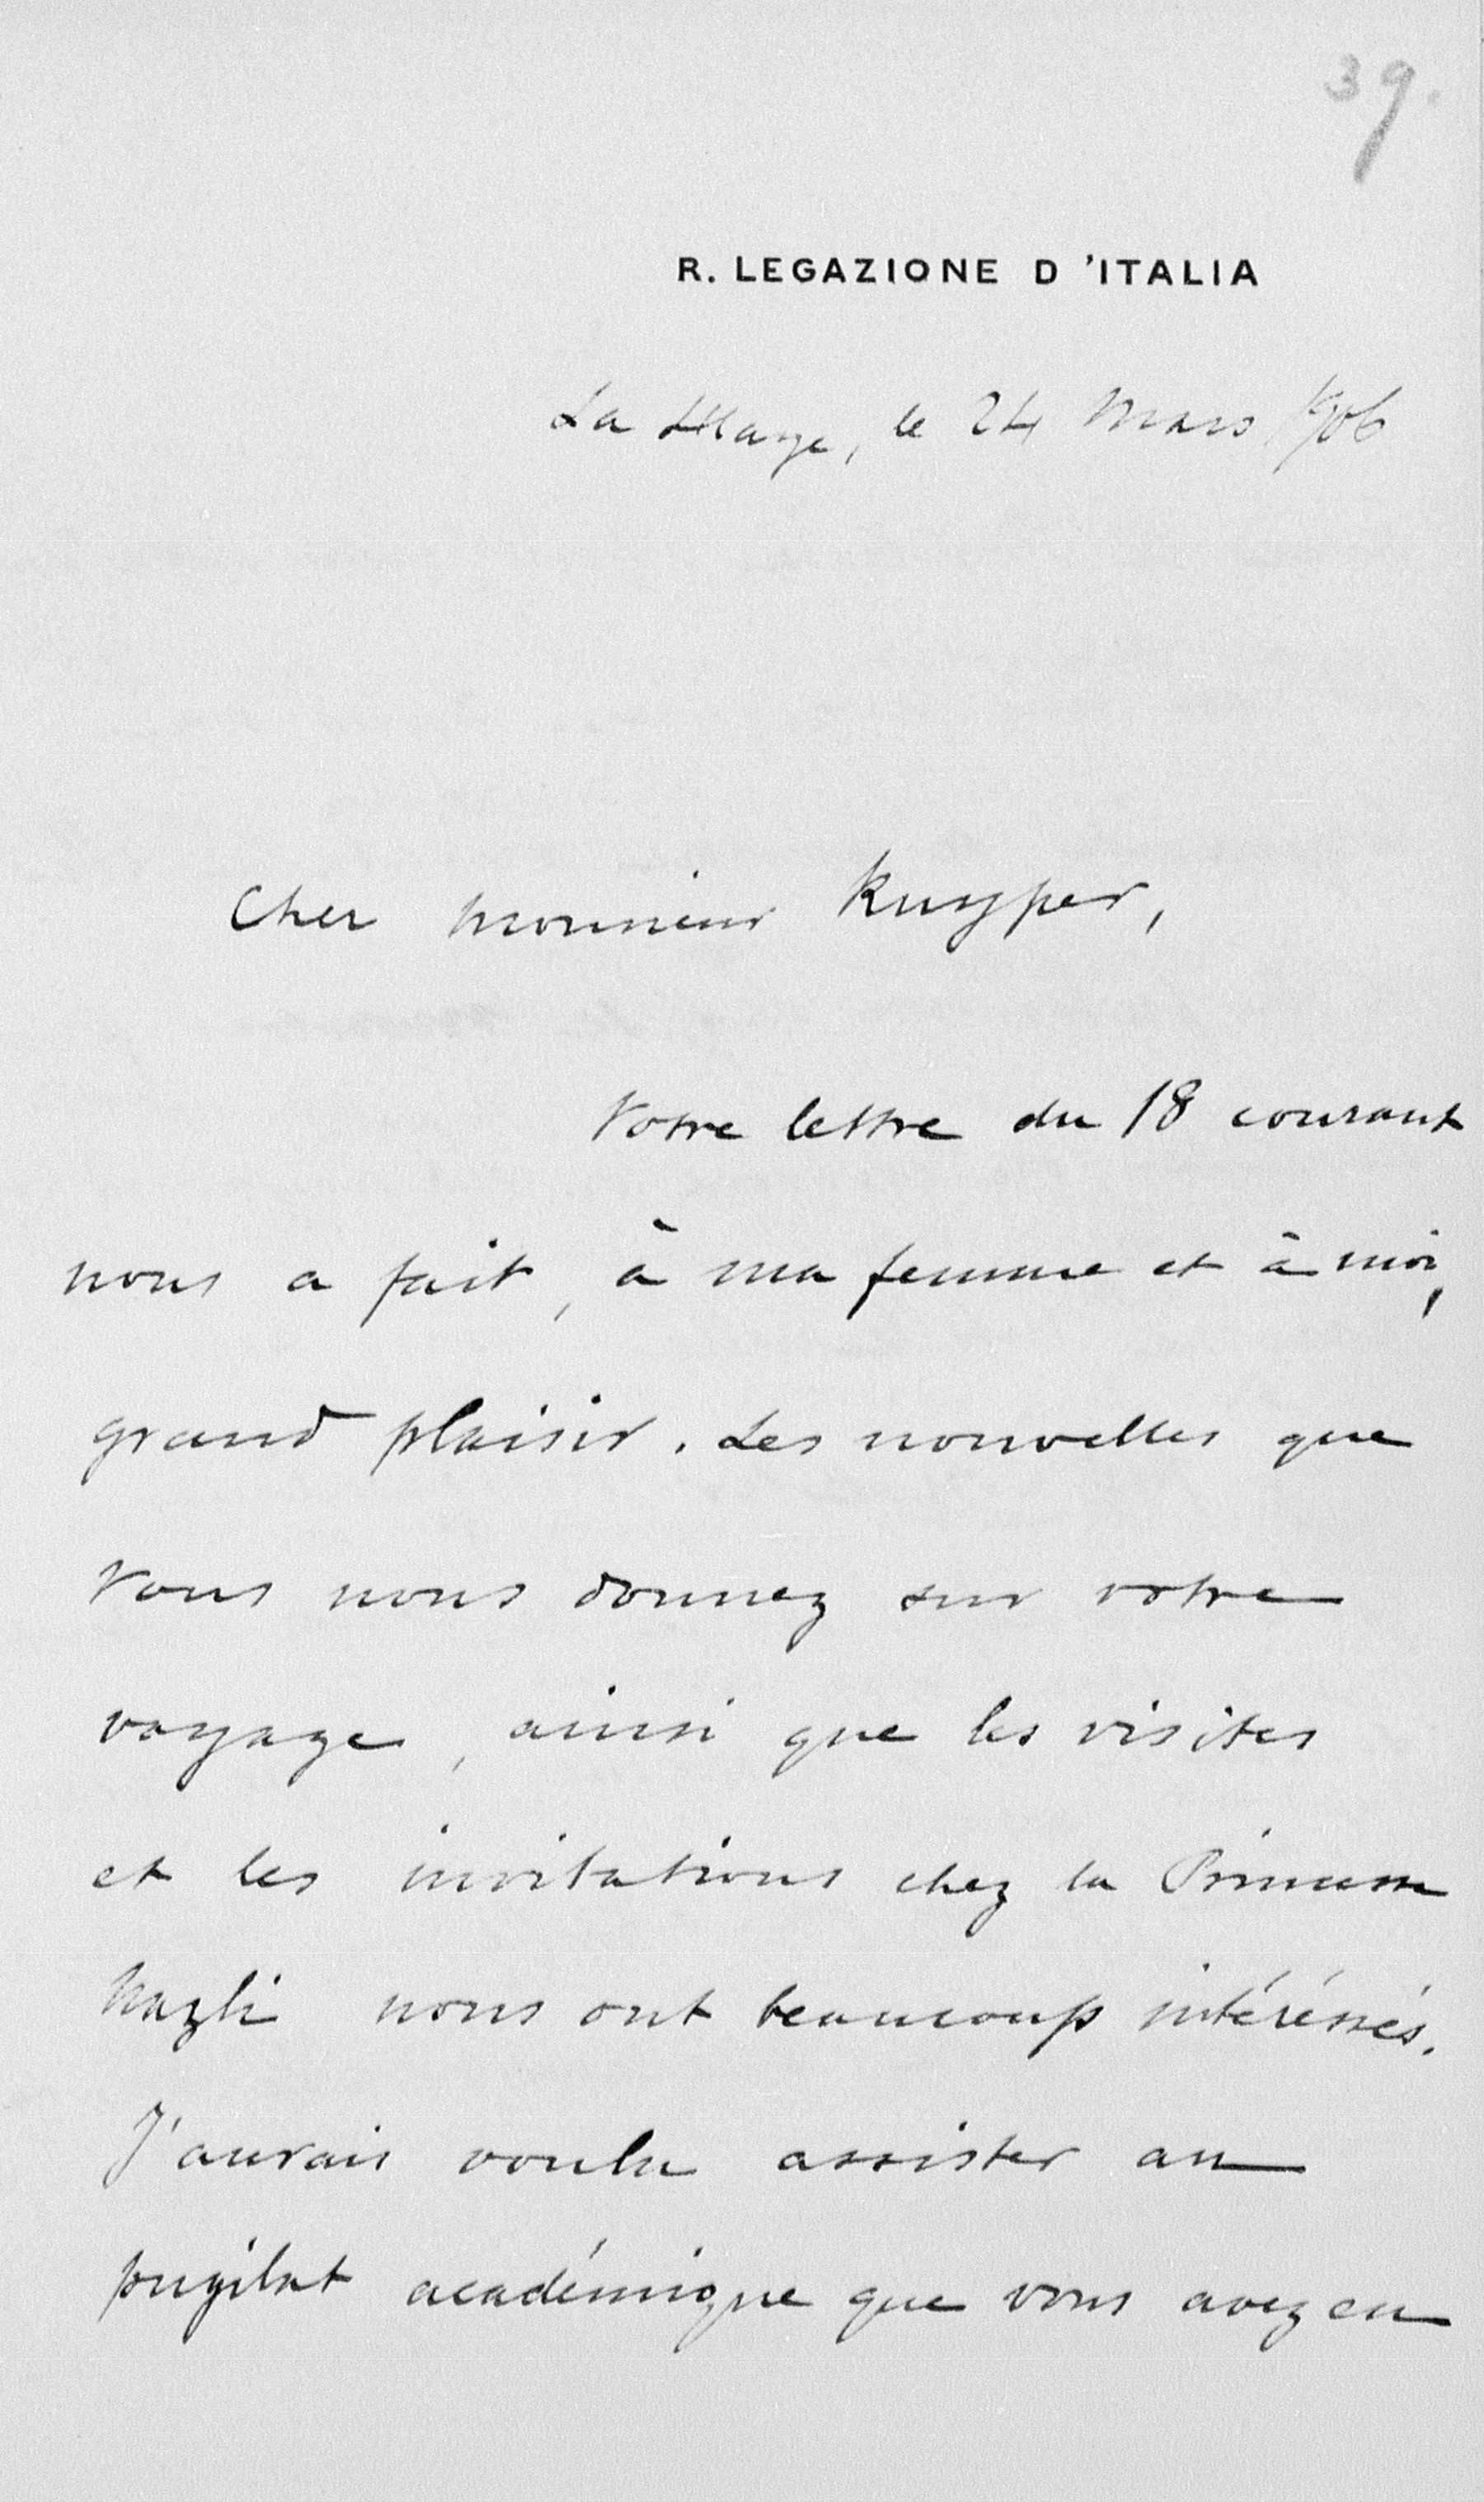 39.
R. LEGAZIONE D'ITALIA
La Haye, le 24 Mars 1906
Cher Monsieur Kuyper,
Votre lettre du 18 courant
nous a fait, à ma femme et à moi,
grand plaisir. Les nouvelles que
vous nous donnez sur votre
voyage, ainsi que les visites
et les invitations chez la Princesse
Nazli nous ont beaucoup intéréssés.
J'aurais voulu assister au
pugilat académique que vous avez eu